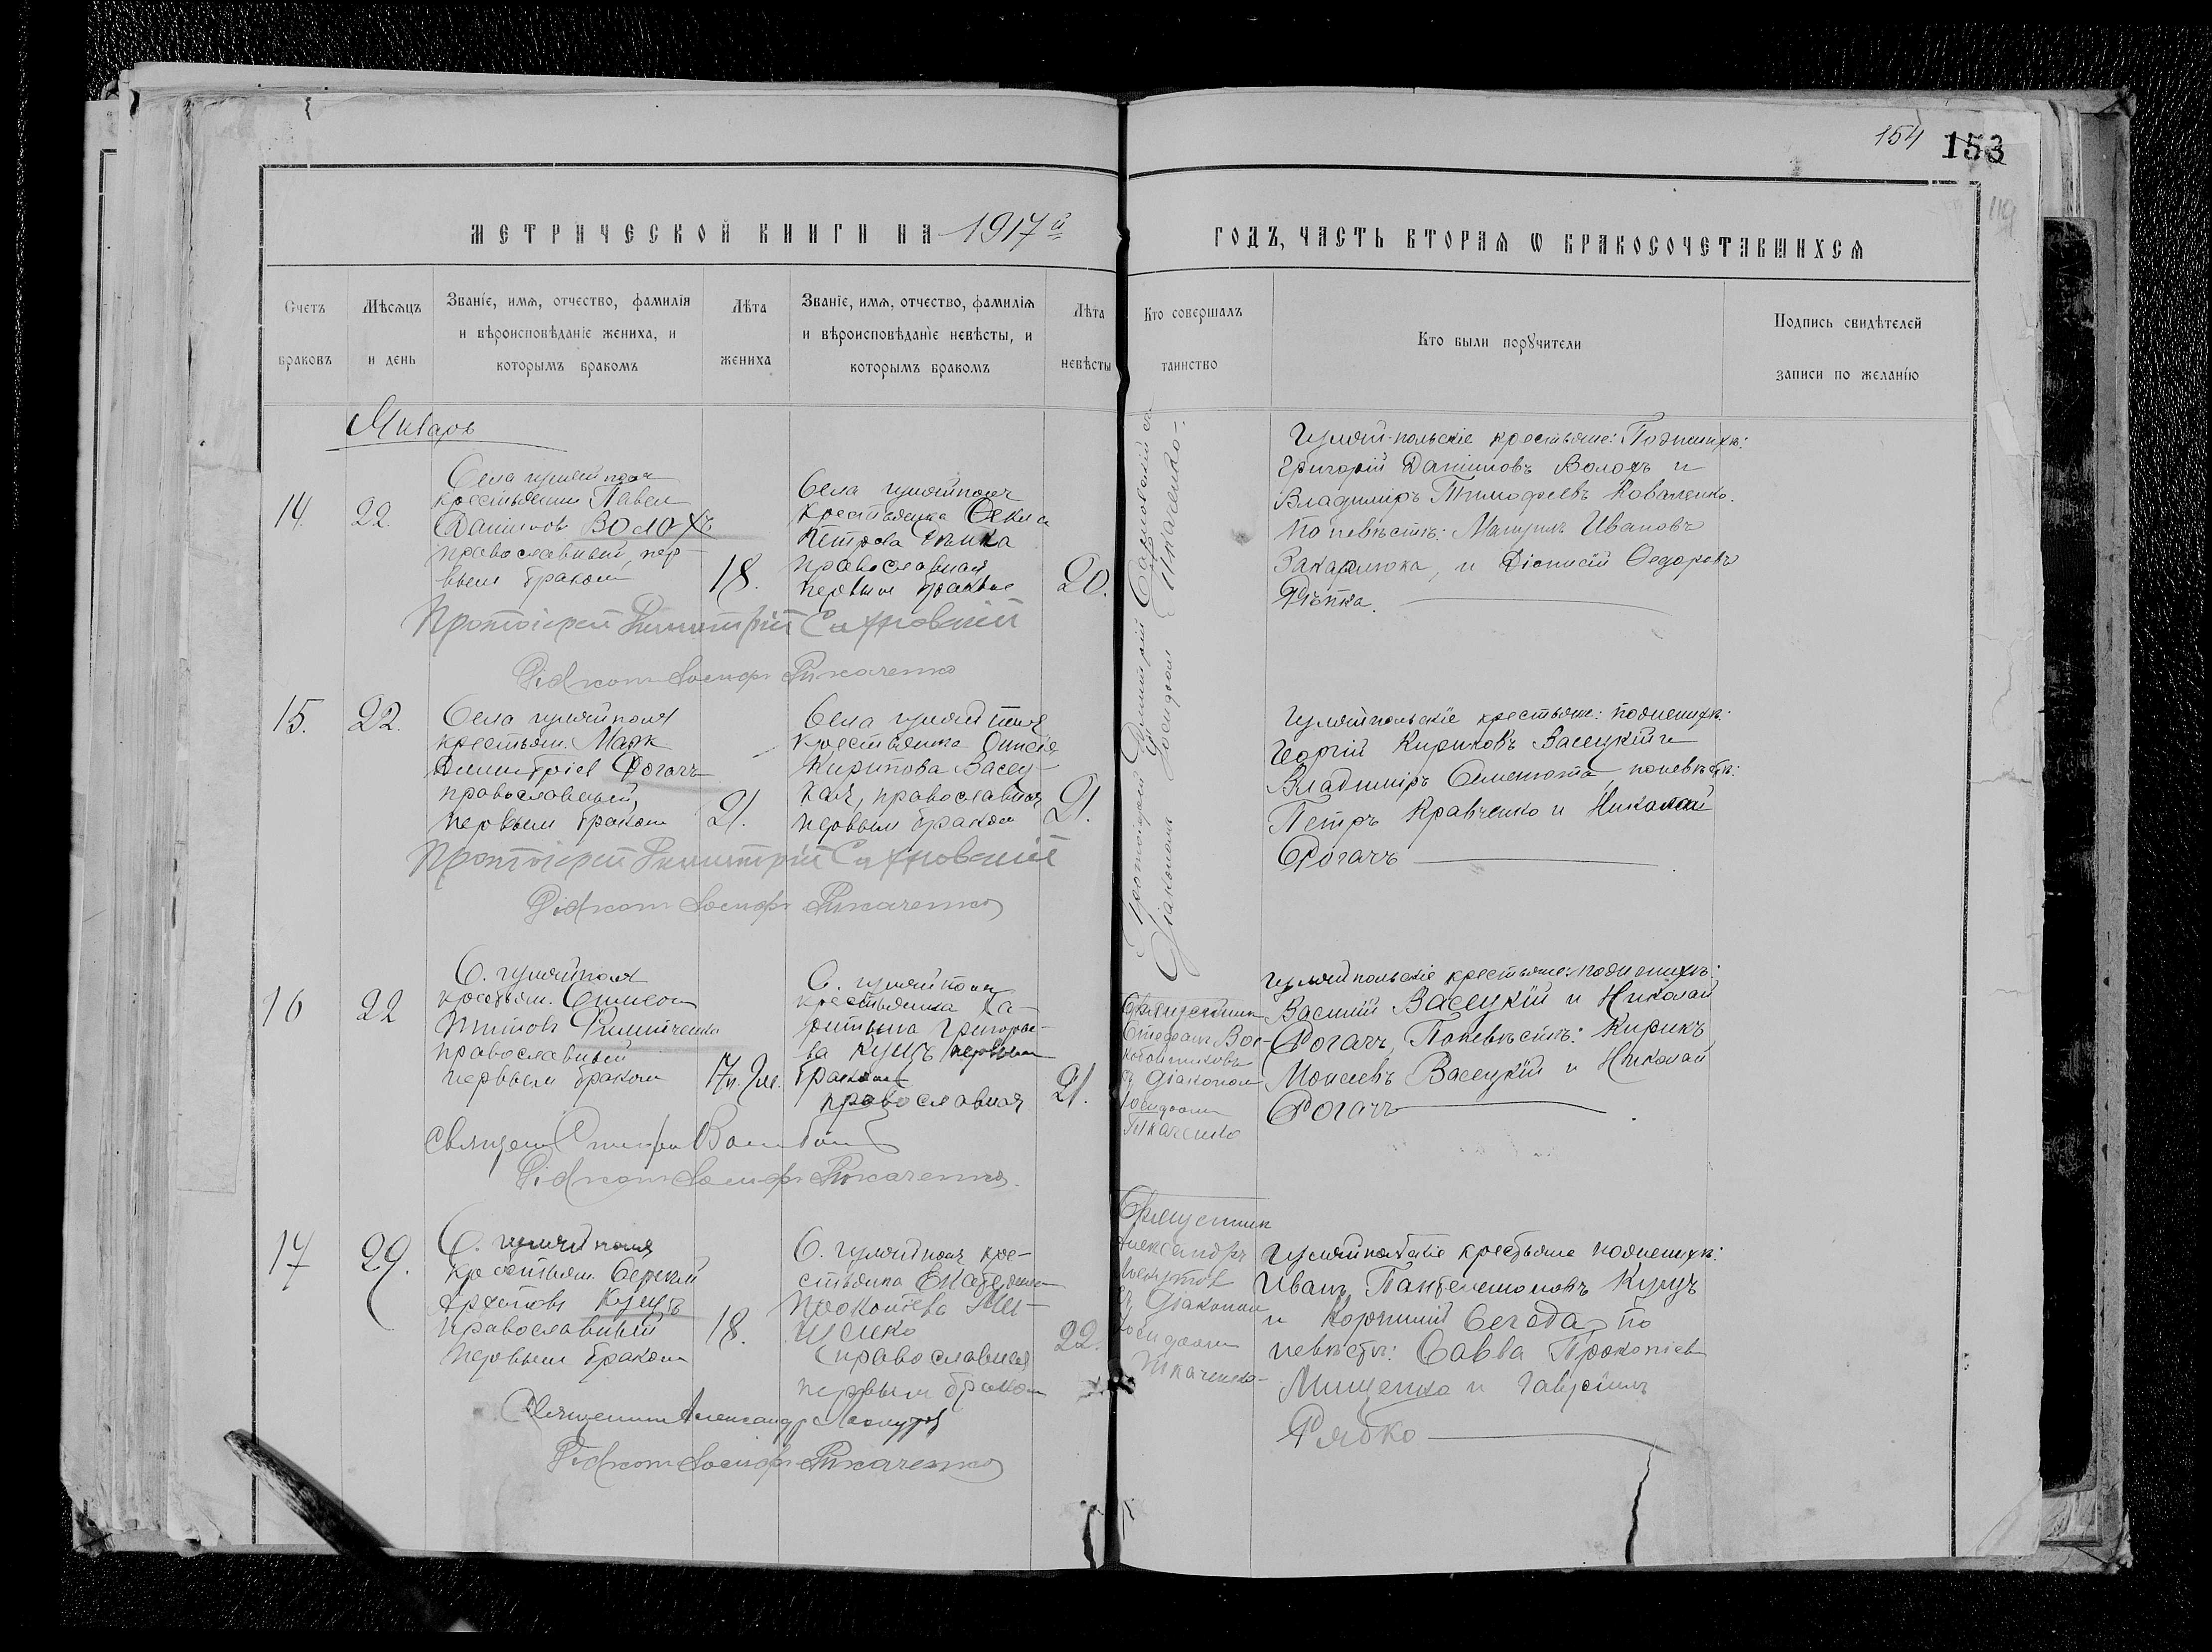 154 153
МЕТРИЧЕСКОЙ КНИГИ НА 1917й
ГОДЪ, ЧАСТЬ ВТОРАЯ Ѡ БРАКОСОЧЕТАВШИХСЯ
Счетъ
браковъ
Мѣсяцъ
и день
Званіе, имя, отчество, фамилія
и вѣроисповѣданіе жениха, и
которымъ бракомъ
Лѣта
жениха
Званіе, имя, отчество, фамилія
и вѣроисповѣданіе невѣсты, и
которымъ бракомъ
Лѣта
невѣсты
Кто совершалъ
таинство
Кто были порꙋчители
Подпись свидѣтелей
записи по желанію
Январь
14
22.
Села гуляйполя
крестьянин Павел
Данилов Волохъ
православный, пер-
вым браком
18.
Села гуляйполя
крестьянка Фекла
Петрова
православная
первым браком
20.
Протоіерей Димитрій Сахновскій съ
Діаконом Іосифом Ткаченко-
Гуляй-польскіе крестьяне: По жениху:
Григорій Даниловъ Волохъ и
Владиміръ Тимофеевъ Коваленко.
По невѣстѣ: Мануилъ Ивановъ
Закарлюка, и Діонисій Федоровъ
Рѣпка.
Протоіерей Димитрій Сахновскій
Діакон Іосиф Ткаченко
15.
22.
Села гуляйполя
крестьян. Марк
Димитріев Рогачъ
православный,
первым браком
21.
Села гуляйполя
крестьянка
Кирикова Васец-
кая, православная
первым браком
21.
Гуляйпольскіе крестьяне: по жениху:
Георгій Кириковъ Васецкій и
Владиміръ Семенюта по невѣстѣ:
Петръ Кравченко и Николай
Рогачъ
Протоіерей Димитрій Сахновскій
Діакон Іосиф Ткаченко
16
22
С. гуляйполя
крестьян. Симеон
Титов
православный
первым браком
17
С. гуляйполя
крестьянка Ха-
ритина Григорье-
ва Куцъ первым
браком
православная
21.
Священник
Стефан Вос-
коботниковъ
съ Діаконом
Іосифом
Ткаченко
Гуляйпольскіе крестьяне: по жениху:
Василій Васецкій и Николай
Рогачъ, По невѣстѣ: Кирикъ
Моисеевъ Васецкій и Николай
Рогачъ
Діакон Іосиф Ткаченко.
17
29.
С. гуляйполя
крестьян. Сергій
Архипов Куцъ
православный
первым браком
18.
С. гуляйполя кре-
стьянка Екатерина
Прокопіева Ми-
щенко
православная
первым браком
22.
Священник
Александръ
съ Діаконом
Іосифом
Ткаченко-
Гуляйпольскіе крестьяне по жениху:
Иванъ Пантелеимоновъ Куцъ
и Корнилій Сегеда, по
невѣстѣ: Савва Прокопіев
Мищенко и Гавріилъ
Рябко
Священник Александр
Діакон Іосиф Ткаченко